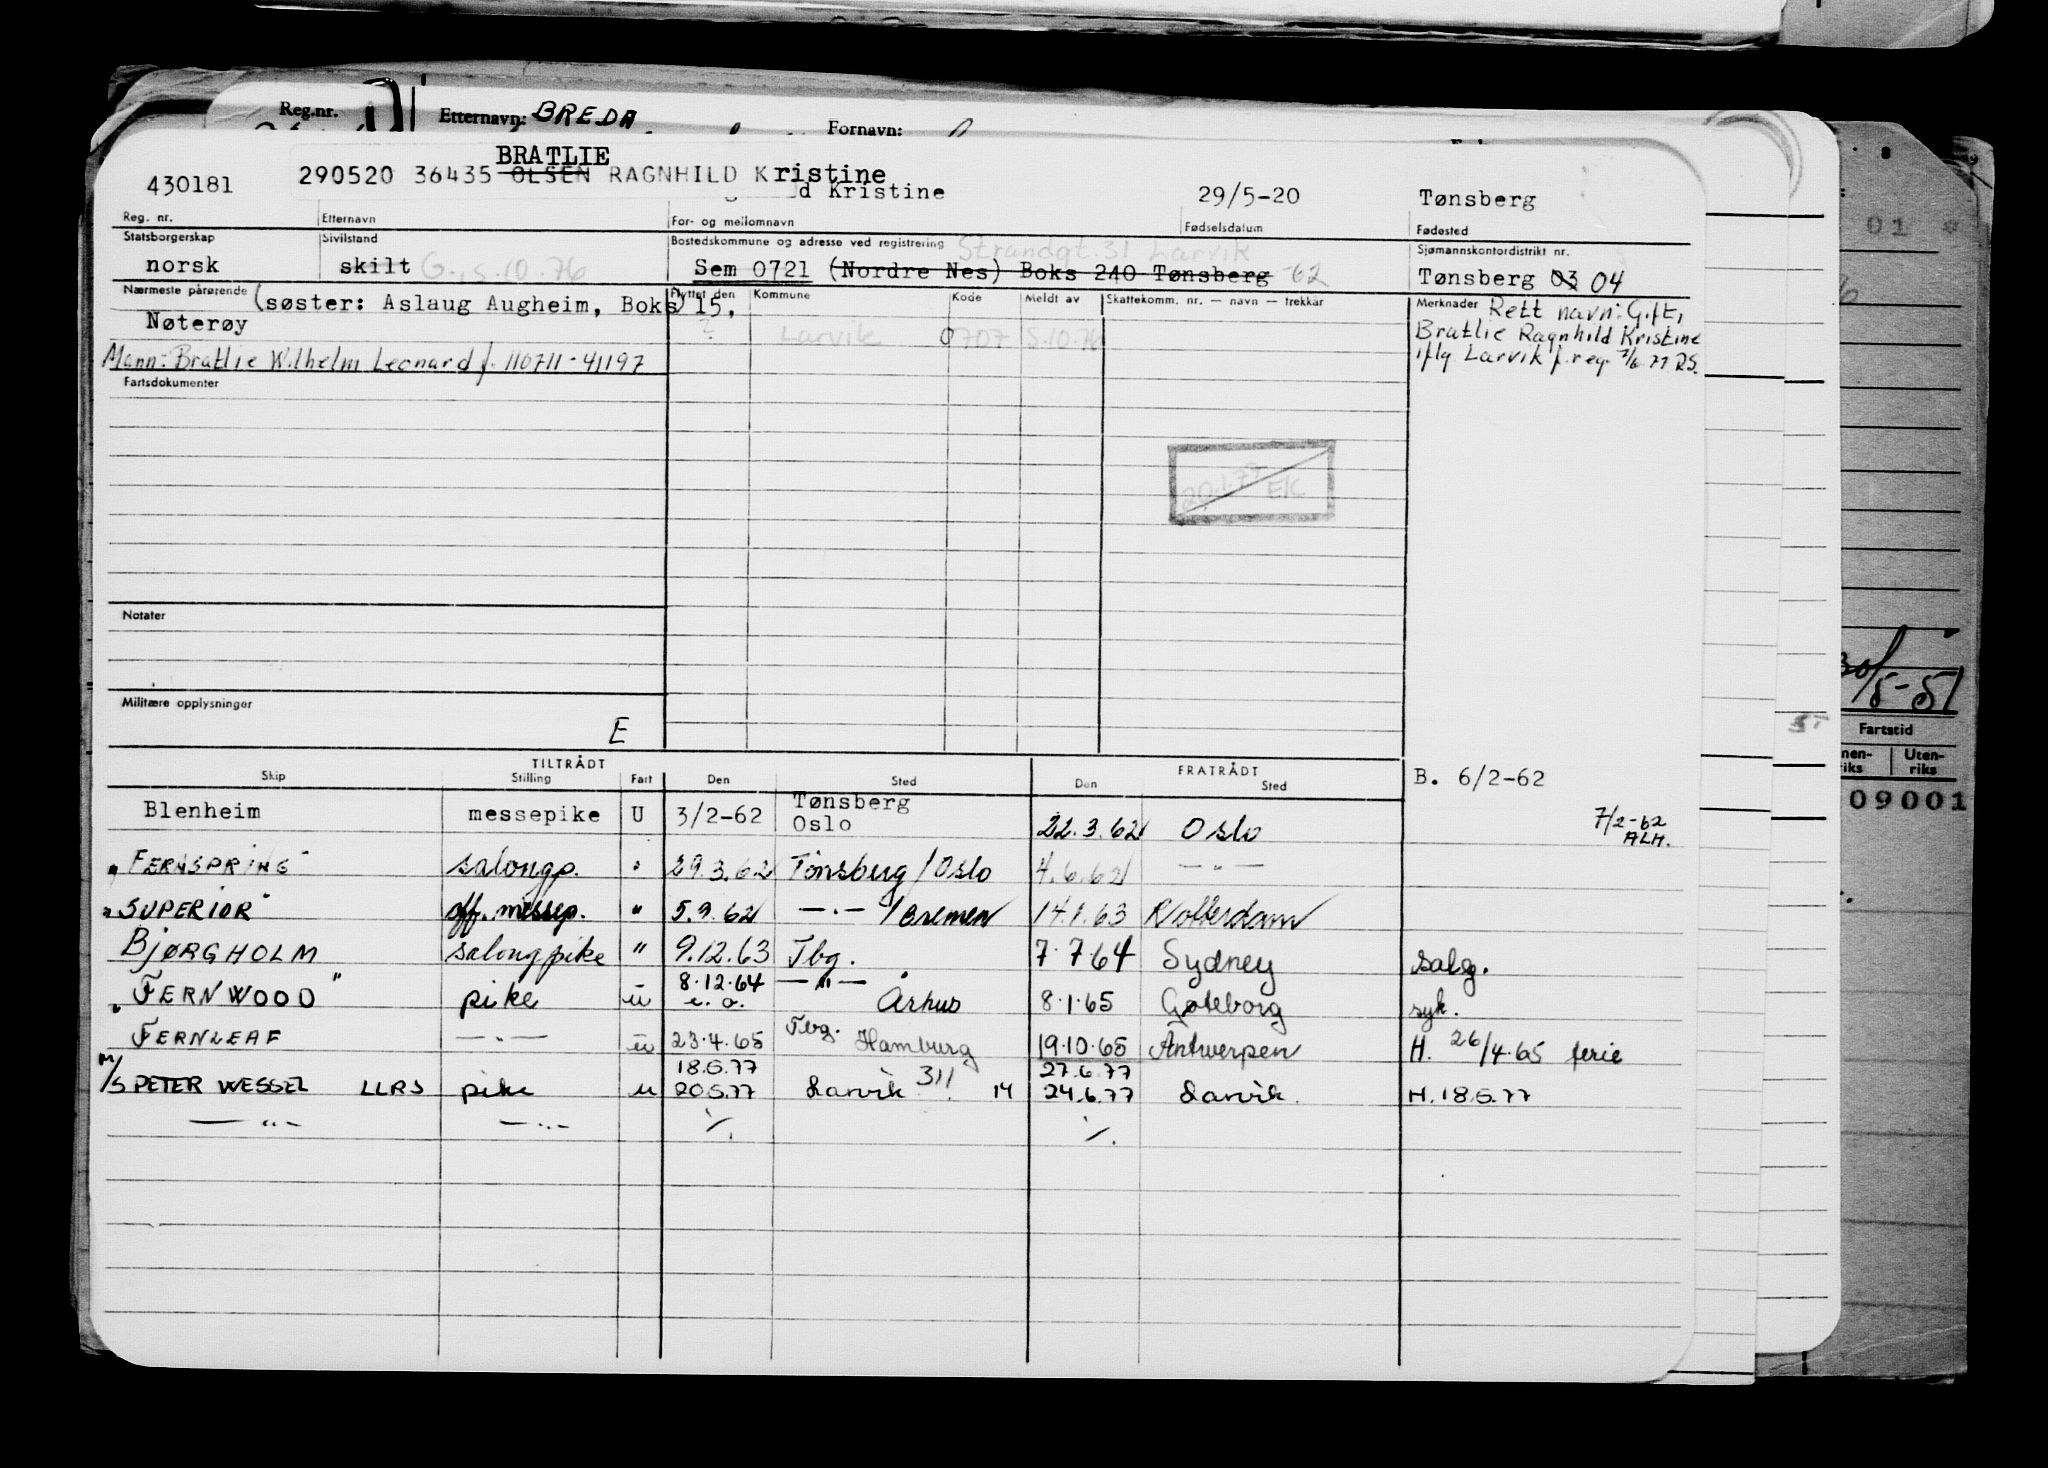 Reg.nr. Etternavn: BREDA Fornavn:
BRATLIE
430181 290520 36435 OLSEN RAGNHILD Kristine
d Kristine 29/5-20 Tønsberg
Reg. nr. Etternavn For- og mellomnavn Fødselsdatum Fødested
Statsborgerskap Sivilstand Bostedskommune og adresse ved registrering Strandgt. 31 Larvik Sjømannskontordistrikt nr.
norsk skilt G. 15.10.76 Sem 0721 (Nordre Nes) Boks 240 Tønsberg -62 Tønsberg 03 04
Nærmeste pårørende (søster: Aslaug Augheim, Boks 15, Flyttet den Kommune Kode Meldt av Skattekomm. nr. — navn — trekkår Merknader Rett navn: Gift,
Nøterøy ? Larvik 0707 15.10.76 Bratlie Ragnhild Kristine
Mann: Bratlie Wilhelm Leonard f. 110711-41197 iflg. Larvik f.reg. 7/6.77 RS.
Fartsdokumenter
20.1.77 EK
Notater
Militære opplysninger
E
TILTRÅDT FRATRÅDT
Skip Stilling Fart Den Sted Den Sted B. 6/2-62
Blenheim messepike U 3/2-62 Tønsberg Oslo 22.3.62 Oslo 7/2-62 ALH.
"FERNSPRING" salongp. " 29.3.62 Tönsberg/Oslo 4.6.62 —"—
"SUPERIOR" off. messep. " 5.9.62 —"— /Bremen 14.1.63 Rotterdam
BJØRGHOLM salongpike " 9.12.63 Tbg. 7.7.64 Sydney salg.
"FERNWOOD" pike u 8.12.64 e. o. —"— Århus 8.1.65 Gøteborg syk.
FERNLEAF —"— u 23.4.65 Tbg. Hamburg 19.10.65 Antwerpen H. 26/4.65 ferie
18.5.77 311 27.6.77
M/S PETER WESSEL LLRS pike u 20.5.77 Larvik 14 24.6.77 Larvik. H. 18.5.77
—"— —"— ./. ./.
30/5-51
Fartstid
Uten-
riks
09001
01